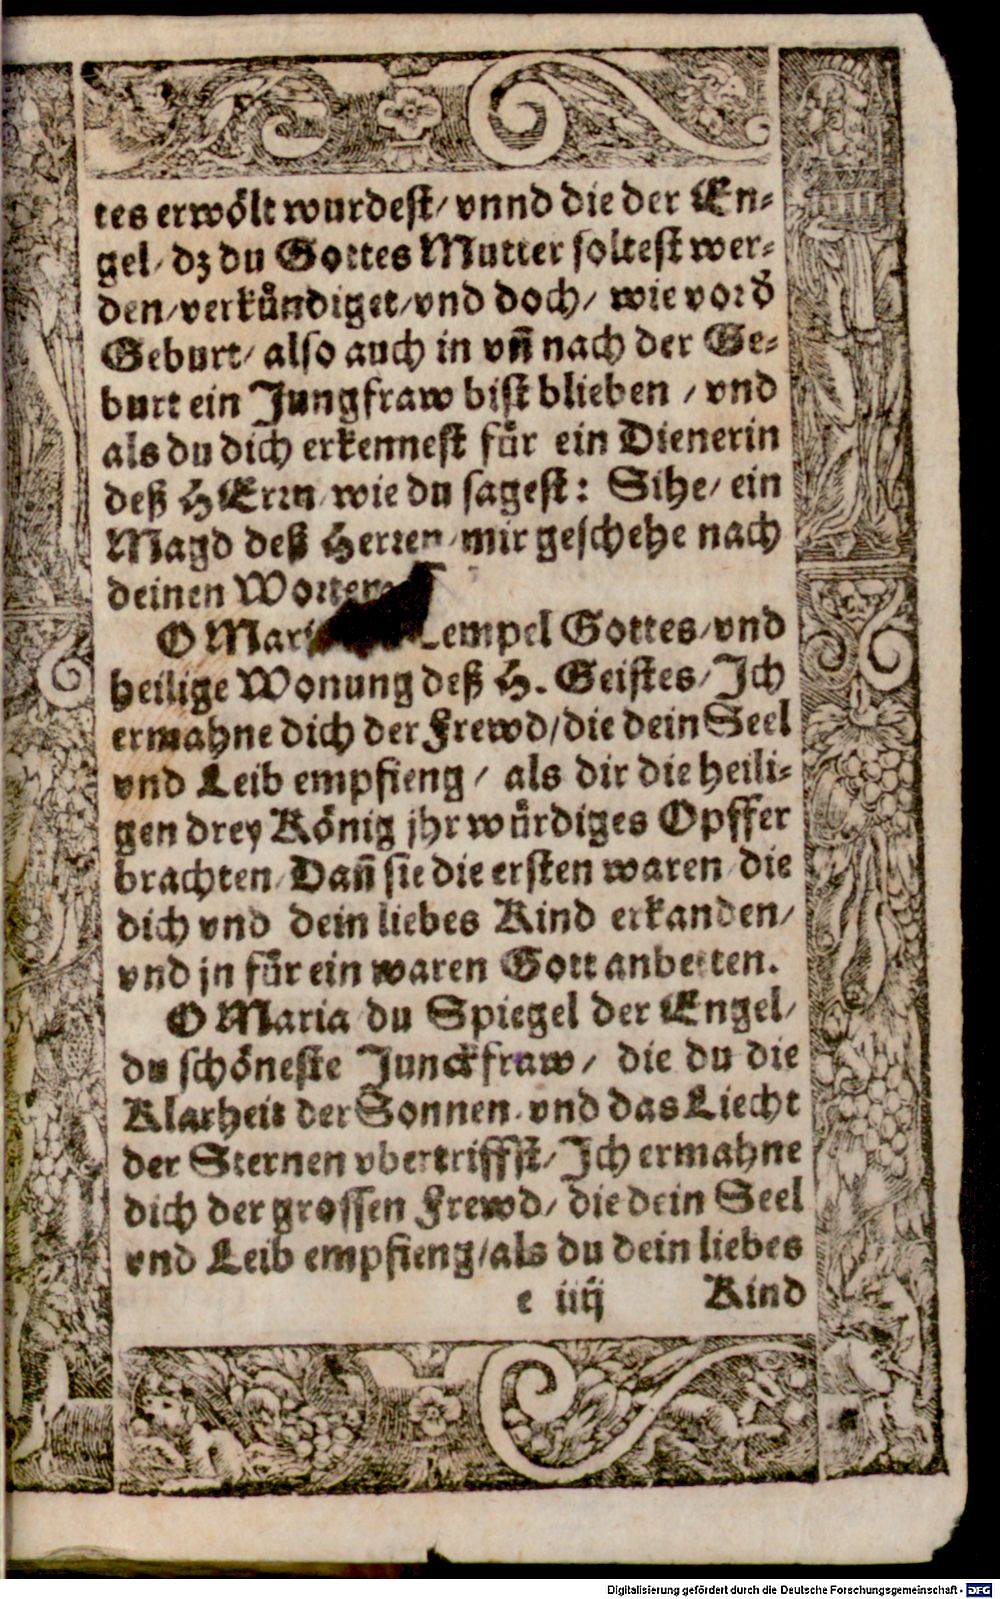 tes erwölt wurdest/ vnnd die der En-
gel/ dz du Gottes Mutter soltest wer-
den/ verkündiget/ vnd doch/ wie vor d̄
Geburt/ also auch in vñ nach der Ge-
burt ein Jungfraw bist blieben / vnd
als du dich erkennest für ein Dienerin
deß HErrn/ wie du sagest: Sihe/ ein
Magd deß Herren/ mir geschehe nach
deinen
O Tempel Gottes/ vnd
heilige Wonung deß H. Geistes/ Ich
ermahne dich der Frewd/ die dein Seel
vnd Leib empfieng / als dir die heili-
gen drey König jhr würdiges Opffer
brachten/ Dañ sie die ersten waren/ die
dich vnd dein liebes Kind erkanden/
vnd jn für ein waren Gott anbetten.
O Maria du Spiegel der Engel/
du schöneste Junckfraw/ die du die
Klarheit der Sonnen/ vnd das Liecht
der Sternen vbertriffst/ Ich ermahne
dich der grossen Frewd/ die dein Seel
vnd Leib empfieng/ als du dein liebes
e iiij Kind
Digitalisierung gefördert durch die Deutsche Forschungsgemeinschaft - DFG